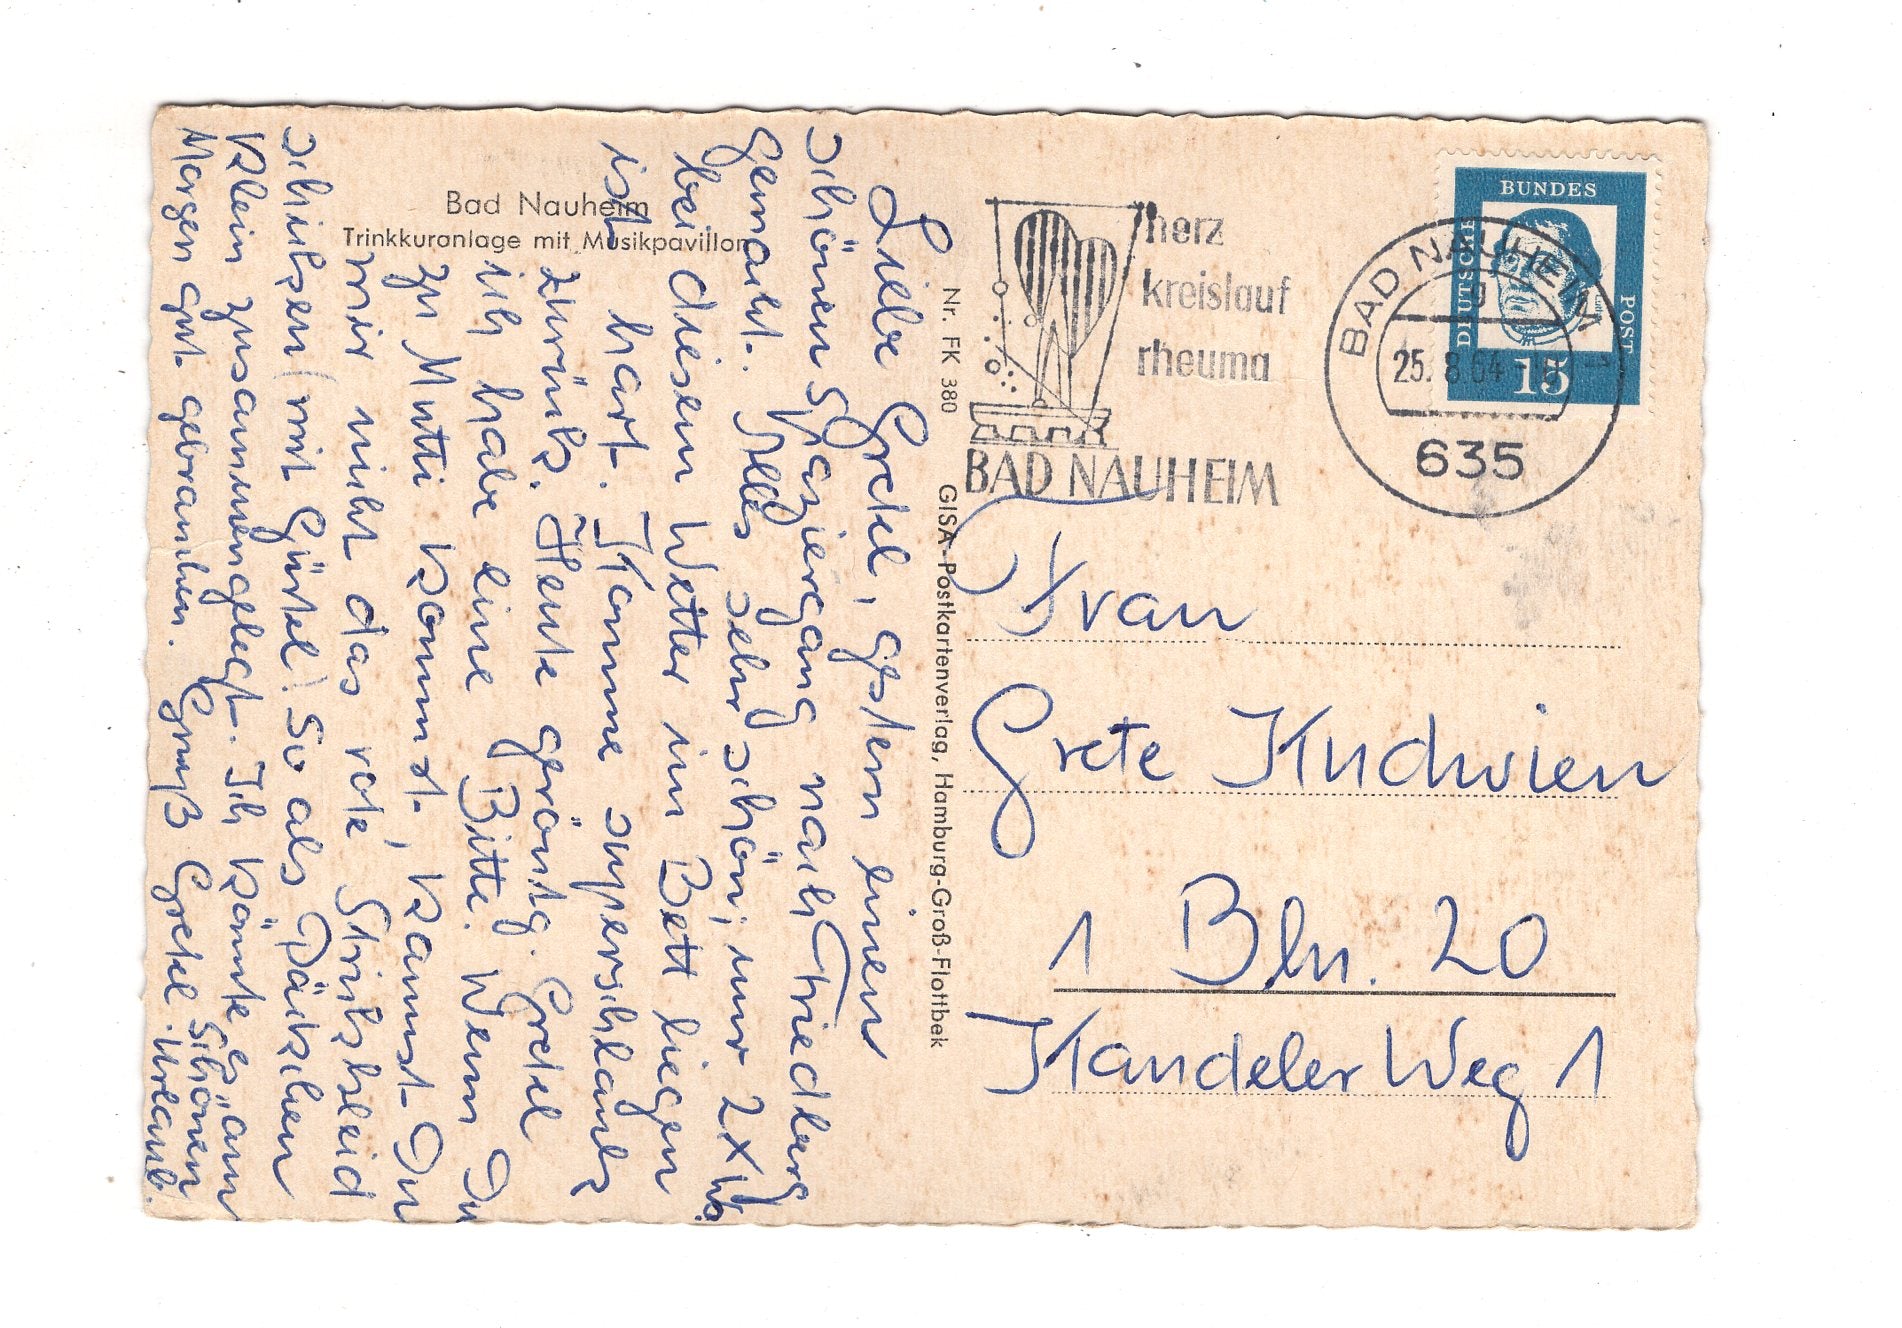 Bad Nauheim
Trinkkuranlage mit Musikpavillon
Liebe Gretel, gestern einen
schönen Spaziergang nach Friedberg
gemacht. Alles sehr schön, nur 2x
bei diesem Wetter im Bett liegen
ist hart. Komme superschlank
zurück. Heute geröntg. Gretel
ich habe eine Bitte. Wenn Du
zu Mutti kommst, kannst Du
mir nicht das rote Strickkleid
schicken (mit Gürtel) so als Päckchen
klein zusammengelegt. Ich könnte es am
Morgen gut gebrauchen. Gruß Gretel. Schönen
Urlaub.
Nr. FK 380 GISA-Postkartenverlag, Hamburg-Groß-Flottbek
herz
kreislauf
rheuma
BAD NAUHEIM
DEUTSCHE BUNDES POST
15
BAD NAUHEIM
g
25.8.64
635
Frau
Grete Kudwien
1 Bln. 20
Kandeler Weg 1